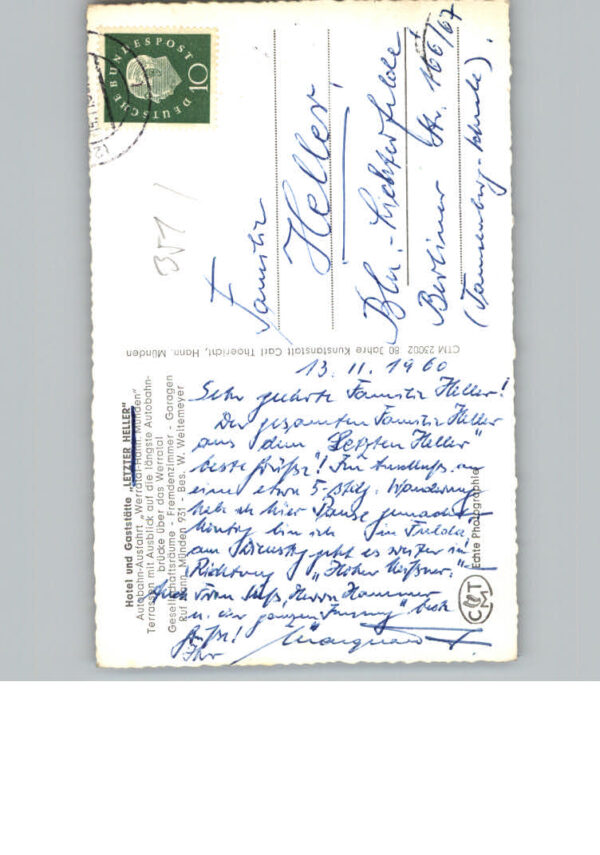 Hotel und Gaststätte „LETZTER HELLER"
Autobahn-Ausfahrt „Werratal-Hann. Münden"
Terrassen mit Ausblick auf die längste Autobahn-
brücke über das Werratal
Gesellschaftsräume - Fremdenzimmer - Garagen
Ruf Hann. Münden 931 - Bes. W. Weltemeyer
13. 11. 1960
Sehr geehrte Familie Heller!
Der gesamten Familie Heller
aus dem „Letzten Heller"
beste Grüße! Im Anschluß an
eine etwa 5-stdg. Wanderung
habe ich hier Pause gemacht
bin ich in Fulda
am Dienstag geht es weiter in
Richtung „Hoher Meißner."
Auch Herrn Hammer
u. der ganzen beste
Grüße!
Ihr
Echte Photographie
CTM 23002 80 Jahre Kunstanstalt Carl Thoericht, Hann. Münden
DEUTSCHE BUNDESPOST
10
351
Familie
Heller
Bln.-Lichterfelde
Berliner Str. 166/67
(Tannenberg-Schule).